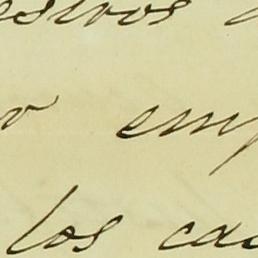 estros
r emp
los cad